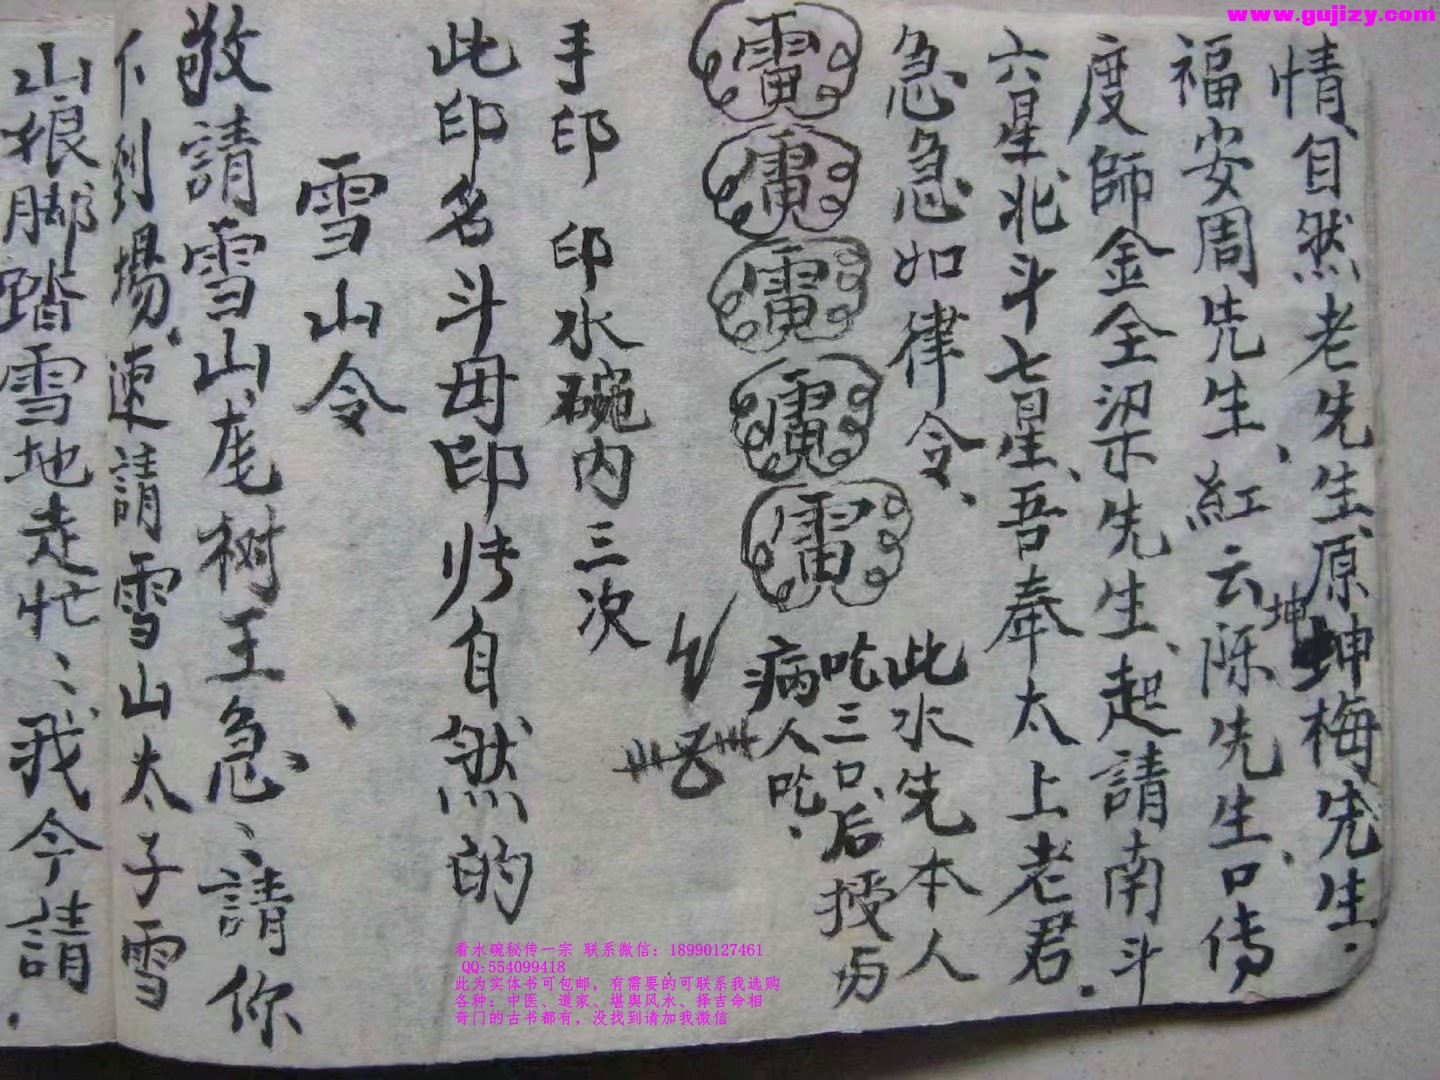 www.gujizy.com
情、自然老先生、原坤梅先生.
福安周先生、紅云陈坤先生口传
度師金全梁不先生、起請南斗
六星北斗七星、吾奉太上老君.
急急如律令、
此水先本人
吃三口、后授与
病人吃.
手印 印水碗内三次
此印名斗母印归自然的
雪山令、
敬請雪山龙树王急急請你
下到場、速請雪山太子雪
山狼脚踏雪地走忙忙我今請.
看水碗秘传一宗 联系微信：18990127461
QQ:554099418
此为实体书可包邮，有需要的可联系我选购
各种：中医、道家、堪舆风水、择吉命相
奇门的古书都有，没找到请加我微信